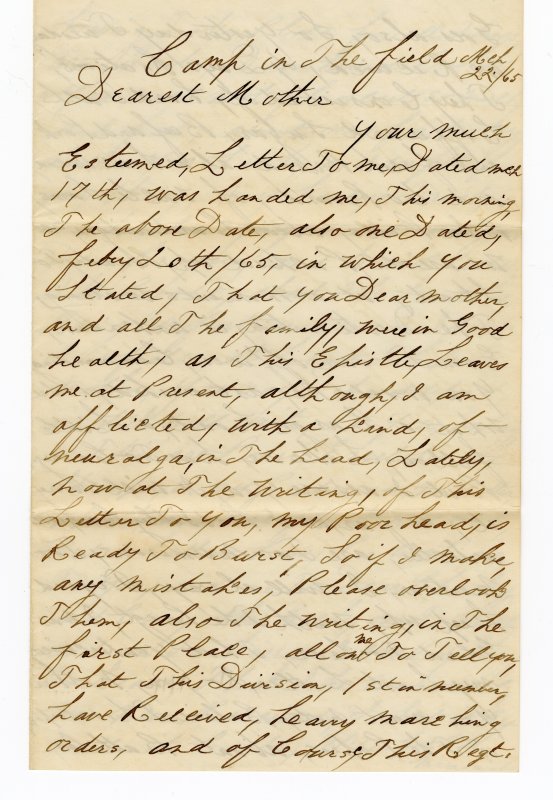 Camp in The field Mch
22/65
Dearest Mother
Your much
Esteemed, Letter To me, Dated mch
17th, was handed me, This morning,
The above Date, also one Dated,
feby 20th/65, in which you
Stated, That you Dear Mother,
and all The family, were in Good
health, as This Epistle, Leaves
me at Present, although, I am
afflicted, with a kind, of
neuralga, in The head, Lately,
now at The writing, of This
Letter To you, my Poor head, is
Ready To Burst, So if I make,
any mistakes, Please overlook
Them, also The writing, in The
first Place, allow me To Tell you,
That This Division, 1st in number,
have Received, heavy marching
orders, and of Course, This Regt.